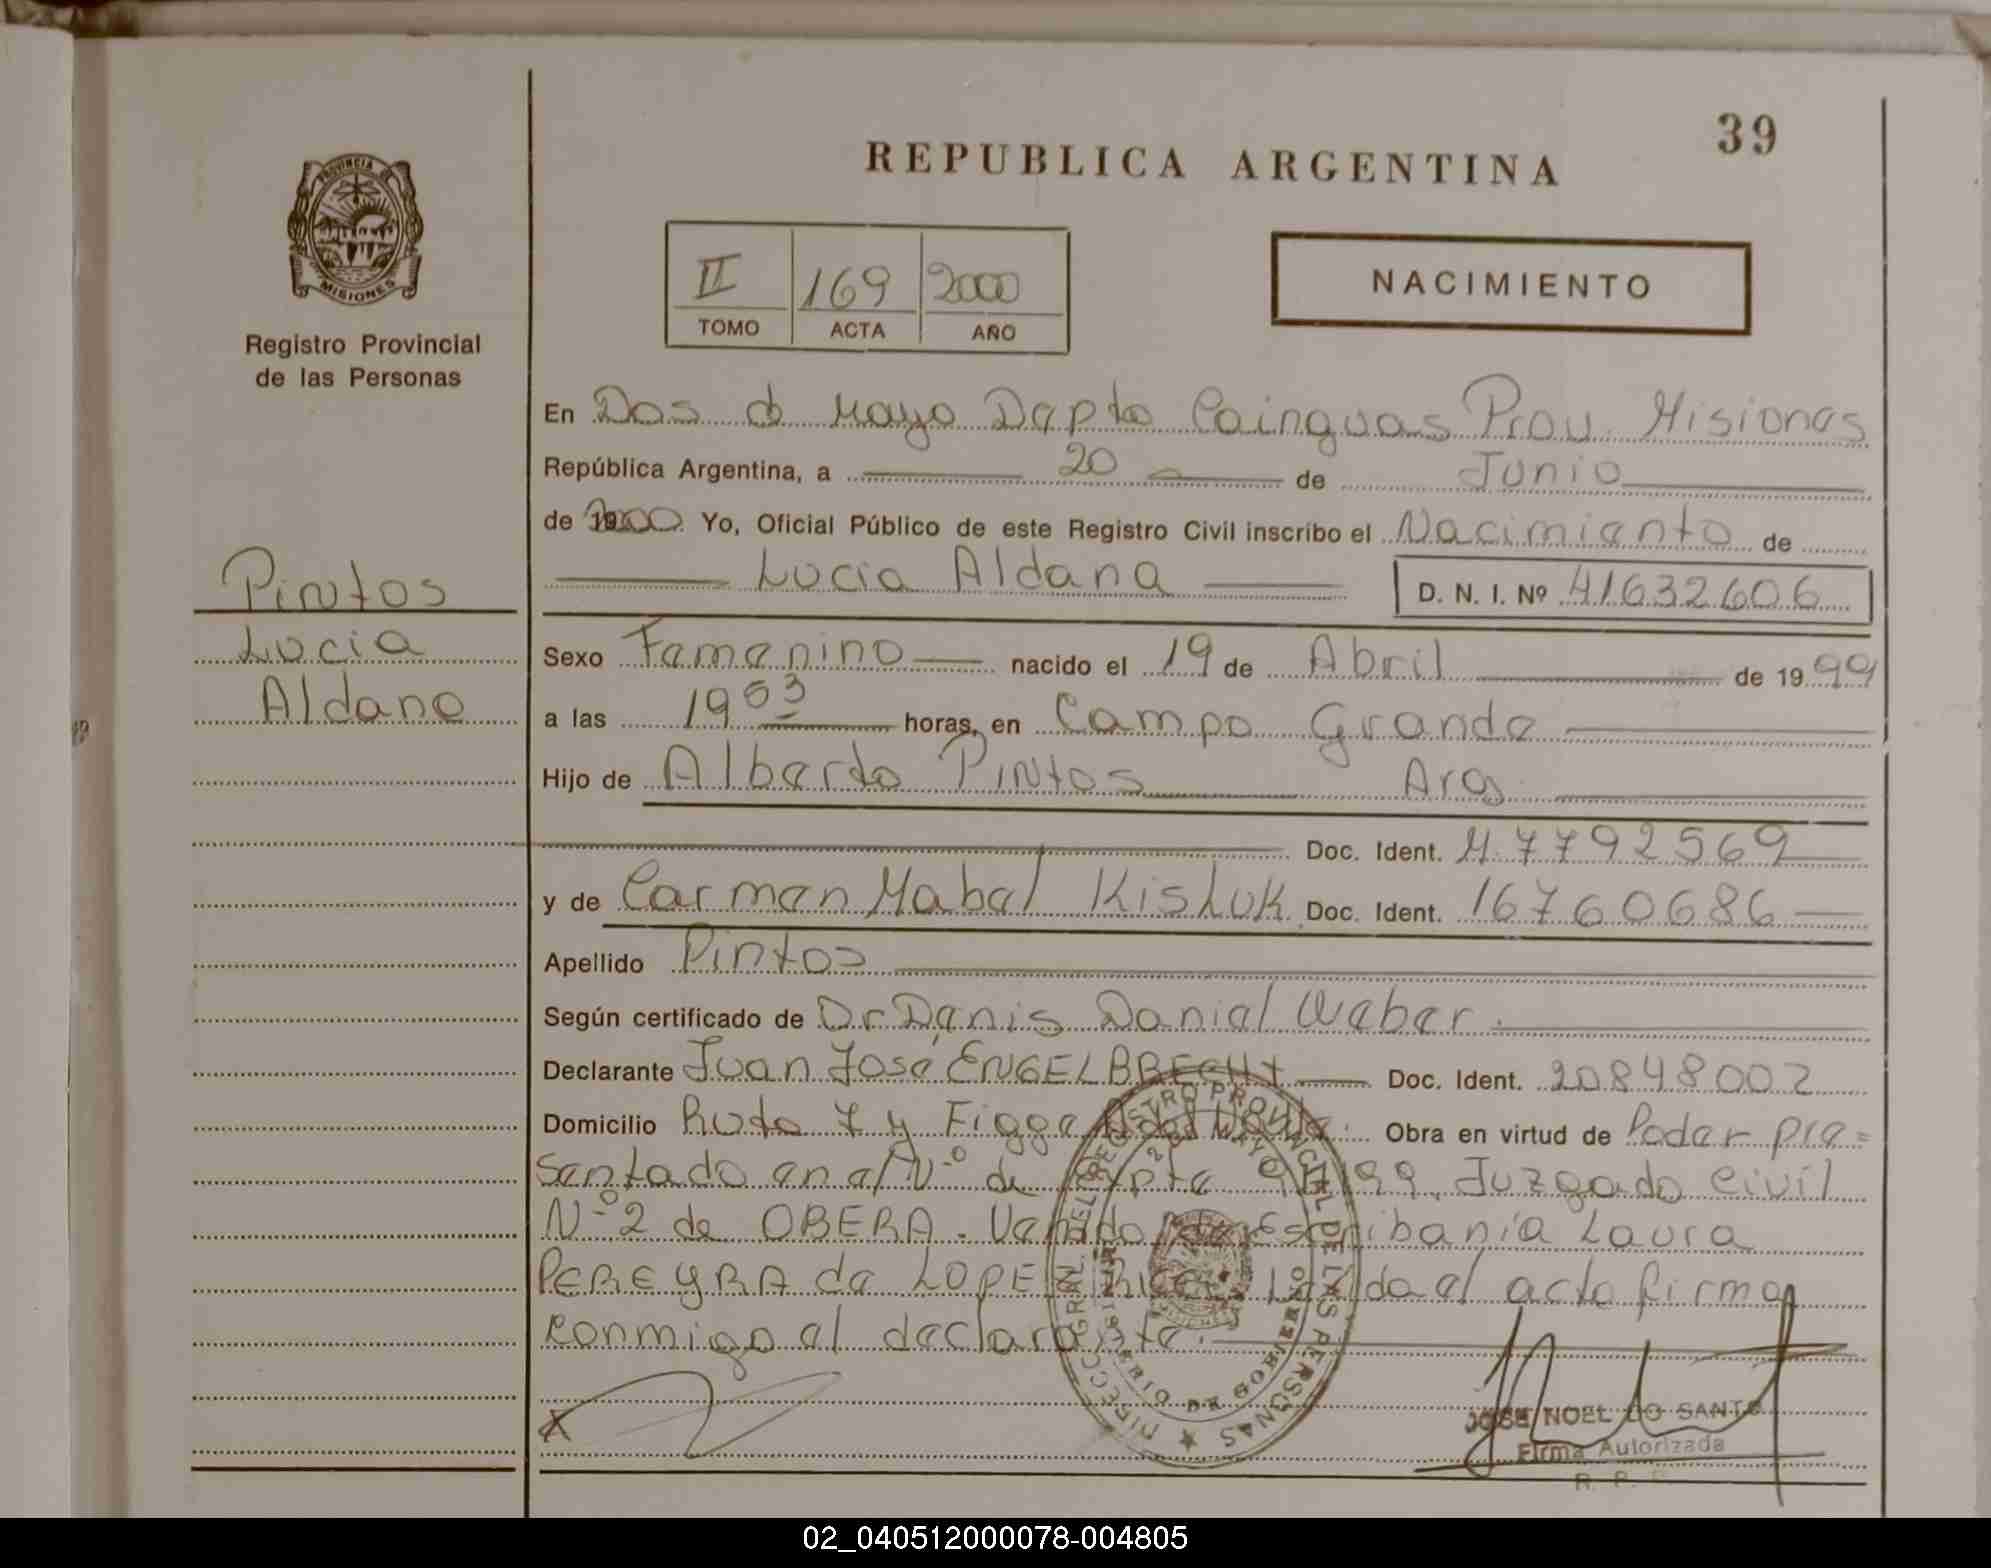 39
REPUBLICA ARGENTINA
PROVINCIA DE
MISIONES
Registro Provincial
de las Personas
II 169 2000
TOMO ACTA AÑO
NACIMIENTO
En Dos de Mayo Depto Cainguas Prov. Misiones
República Argentina, a 20 de Junio
de 2000 Yo, Oficial Público de este Registro Civil inscribo el Nacimiento de
Lucia Aldana D. N. I. Nº 41632606
Pintos
Lucia
Aldana
Sexo Femenino nacido el 19 de Abril de 1999
a las 19 53 horas, en Campo Grande
Hijo de Alberto Pintos Arg.
Doc. Ident. M. 7792569
y de Carmen Mabel Kisluk Doc. Ident. 16760686
Apellido Pintos
Según certificado de Dr Denis Daniel Weber.
Declarante Juan José ENGELBRECHT Doc. Ident. 20848002
Domicilio Ruta 7 y Obra en virtud de Poder pre=
sentado en el N.º de Expte Juzgado Civil
Nº 2 de OBERA. Escribanía Laura
PEREYRA de LOPEZ Leída el acta firma
conmigo el declarante.
DIRECC. GRAL. DEL REGISTRO PROVINCIAL DE LAS PERSONAS
JOSE NOEL DO SANTO
Firma Autorizada
R. P.
02_040512000078-004805